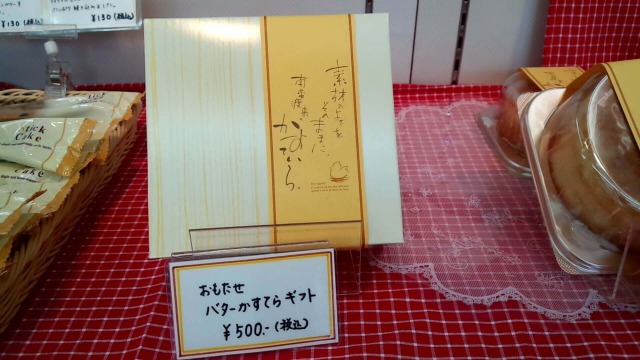 ¥130 (税込)
¥130 (税込)
素材のよさを
そのままに、
南蛮渡来
かすていら。
Stick
Cake
Cake
おもたせ
バターかすてらギフト
¥500.- (税込)